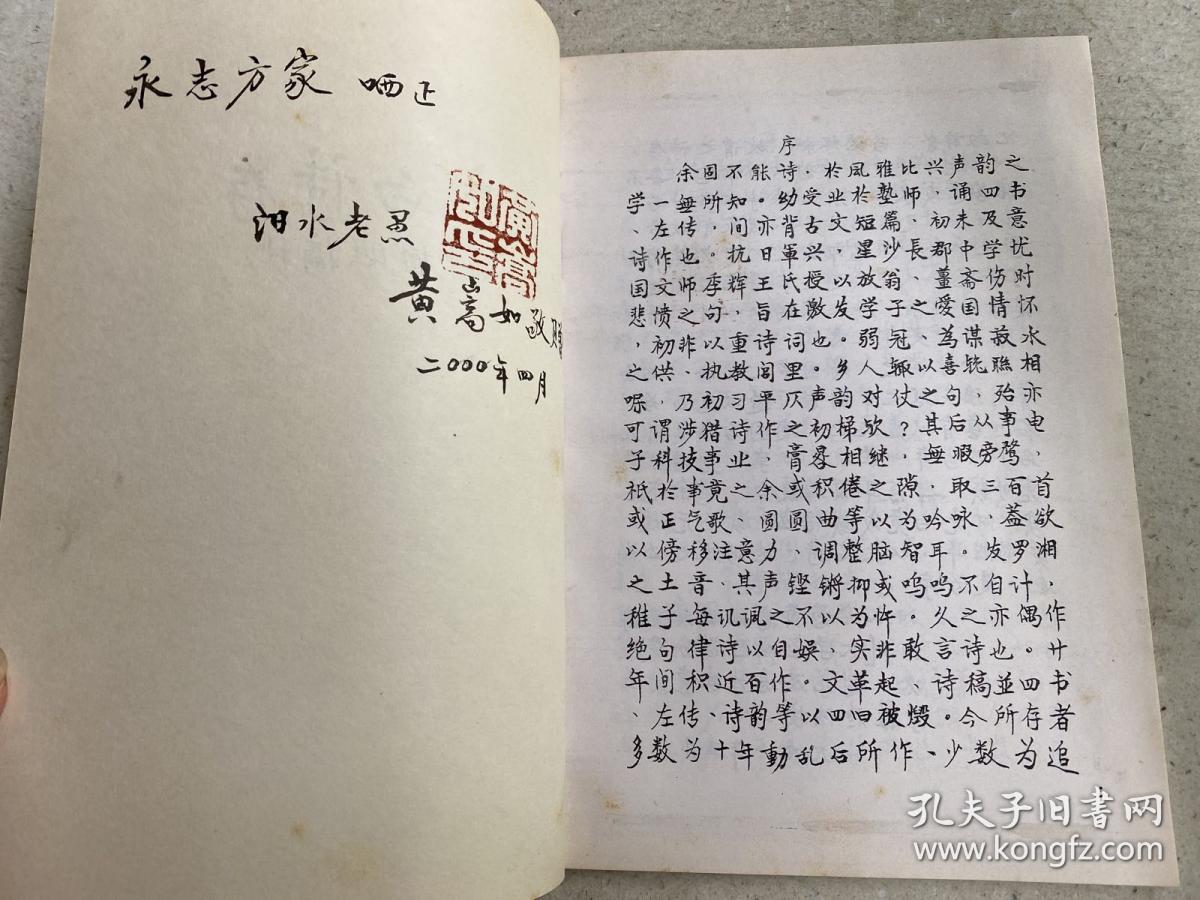 永志方家 哂正
汨水老愚
黄嵩如敬赠
二000年四月
序
余固不能诗．於風雅比兴声韵之
学一無所知。幼受业於塾师，诵四书
、左传，间亦背古文短篇、初未及意
诗作也。抗日軍兴，星沙長郡中学忧
国文师季辉王氏授以放翁、薑斋伤时
悲愤之句，旨在激发学子之爱国情怀
，初非以重诗词也。弱冠、為谋菽水
之供、执教闾里。乡人辄以喜輓聯相
嘱，乃初习平仄声韵对仗之句，殆亦
可谓涉猎诗作之初梯欤？其后从事电
子科技事业，膏晷相继，無暇旁骛，
祇於事竟之余或积倦之隙，取三百首
或正气歌、圆圆曲等以为吟咏，蓋欲
以傍移注意力、调整脑智耳。发罗湘
之土音，其声铿锵抑或呜呜不自计，
稚子每讥讽之不以为忤。久之亦偶作
绝句律诗以自娱、实非敢言诗也。廿
年间积近百作。文革起、诗稿並四书
、左传、诗韵等以四旧被燬。今所存者
多数为十年動乱后所作、少数为追
孔夫子旧书网
www.kongfz.com